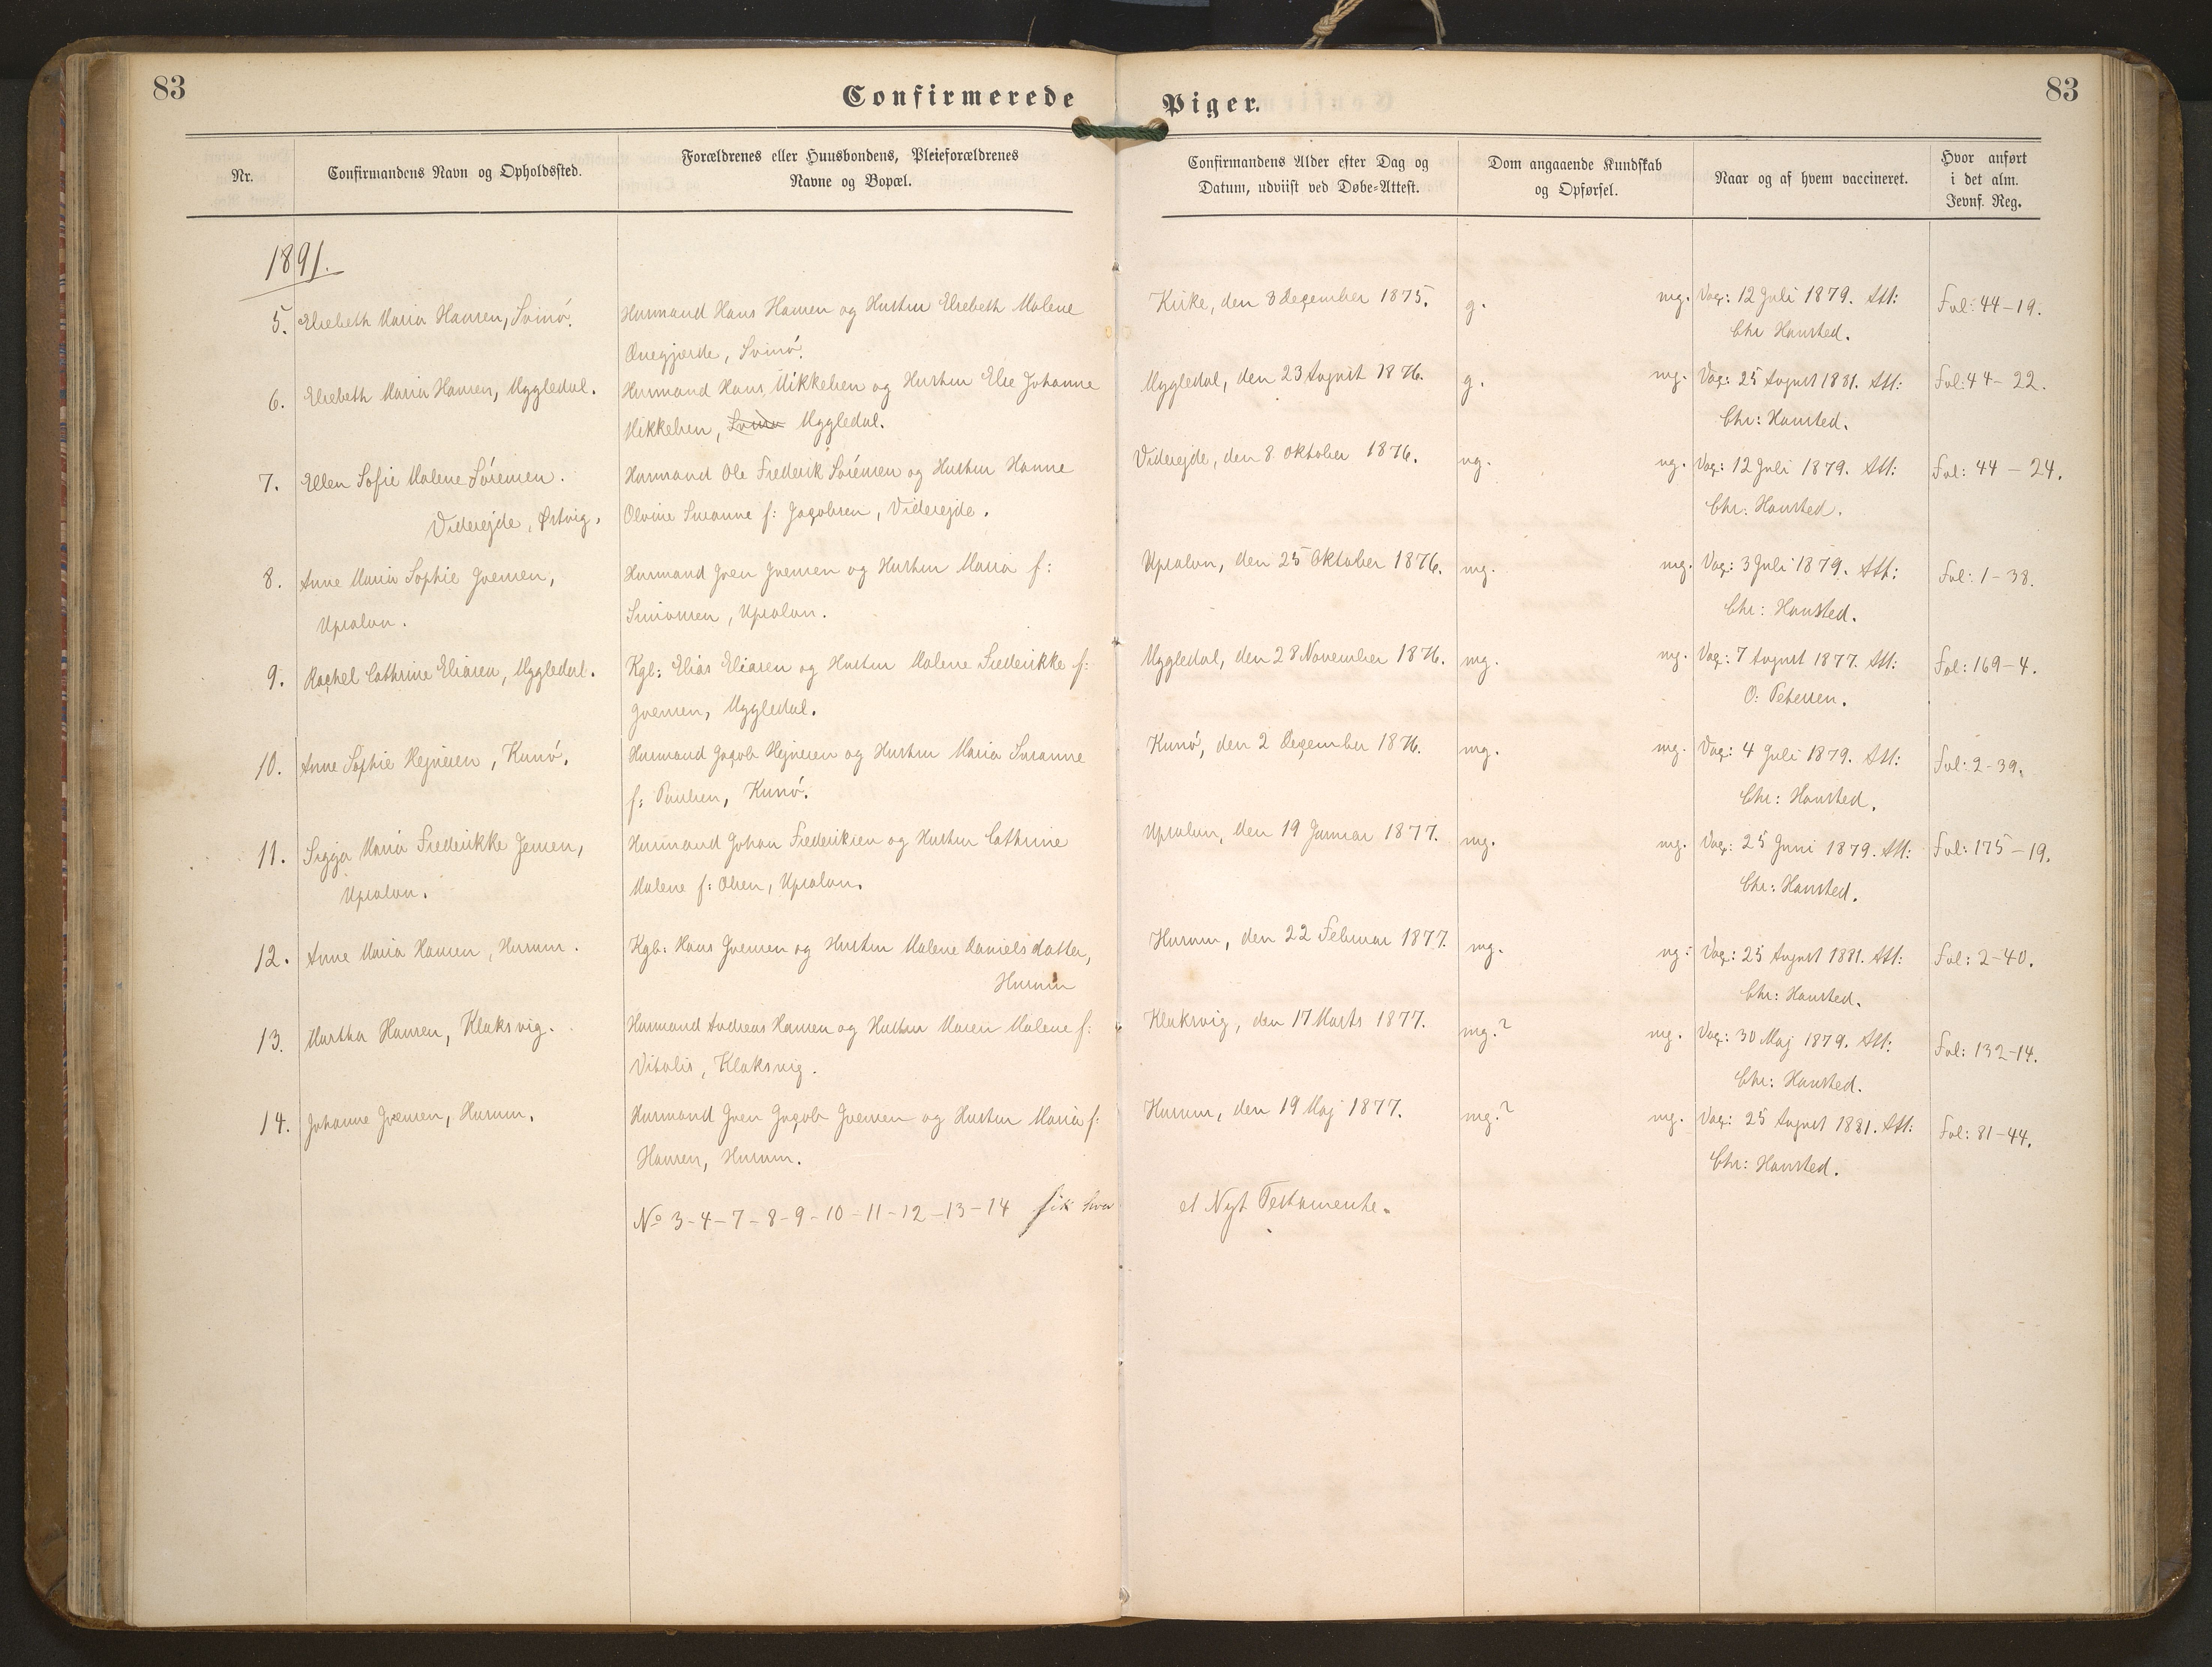 83
Confirmerede Piger.
83
Nr.
Confirmandens Navn og Opholdssted.
Forældrenes eller Huusbondens, Pleieforældrenes
Navne og Bopæl.
Confirmandens Alder efter Dag og
Datum, udviist ved Døbe-Attest.
Dom angaaende Kundskab
og Opførsel.
Naar og af hvem vaccineret.
Hvor anført
i det alm.
Jevnf. Reg.
1891.
5. Elsebeth Maria Hansen, Svinó. Husmand Hans Hansen og Hustru Elsebeth Malene Kirke, den 8 December 1875. g. mg. Vac: 12 Juli 1879. Att: Fol: 44-19.
Svinó. Chr Hansted.
6. Elsebeth Maria Hansen, Myggledal. Husmand Hans Mikkelsen og Hustru Else Johanne Myggledal, den 23 August 1876. g. mg. Vac: 25 August 1881. Att: Fol: 44-22.
Mikkelsen, Svinó Myggledal. Chr: Hansted.
7. Ellen Sofie Malene Sórensen. Husmand Ole Frederik Sórensen og Hustru Hanne Viderejde, den 8 Oktober 1876. ug. ug. Vac: 12 Juli 1879. Att: Fol: 44-24.
Viderejde, Østvig. Olvine Susanne f: Jacobsen, Viderejde. Chr: Hansted.
8. Anne Maria Sophie Joensen, Husmand Joen Joensen og Hustru Maria f: Upsalon, den 25 Oktober 1876. mg. mg. Vac: 3 Juli 1879. Att: Fol: 1-38.
Upsalon. Simonsen, Upsalon. Chr: Hansted.
9. Rachel Cathrine Eliasen, Myggledal. Kgb: Elias Eliasen og Hustru Malene Frederikke f: Myggledal, den 28 November 1876. mg. mg. Vac: 7 August 1877. Att: Fol: 169-4.
Joensen, Myggledal. O: Petersen.
10. Anne Sophie Hejnesen, Kunó. Husmand Jacob Hejnesen og Hustru Maria Susanne Kunó, den 2 December 1876. mg. mg. Vac: 4 Juli 1879. Att: Fol: 2-39.
f: Poulsen, Kunó. Chr: Hansted.
11. Sigga Maria Frederikke Jensen, Husmand Johan Frederiksen og Hustru Cathrine Upsalon, den 19 Januar 1877. mg. mg. Vac: 25 Juni 1879. Att: Fol: 175-19.
Upsalon. Malene f: Olsen, Upsalon. Chr: Hansted.
12. Anne Maria Hansen, Husum. Kgb: Hans Joensen og Hustru Malene Danielsdatter, Husum, den 22 Februar 1877. mg. ug: Vac: 25 August 1881. Att: Fol: 2-40.
Husum Chr: Hansted.
13. Martha Hansen, Klaksvig. Husmand Andreas Hansen og Hustru Maren Malene f: Klaksvig, den 17 Marts 1877. mg.? mg. Vac: 30 Maj 1879. Att: Fol: 132-14.
Vitalis, Klaksvig. Chr: Hansted.
14. Johanne Joensen, Husum. Husmand Joen Jacob Joensen og Hustru Maria f: Husum, den 19 Maj 1877. mg.? mg. Vac: 25 August 1881. Att: Fol: 81-44.
Hansen, Husum. Chr: Hansted.
No 3-4-7-8-9-10-11-12-13-14 fik hver et Nyt Testamente.